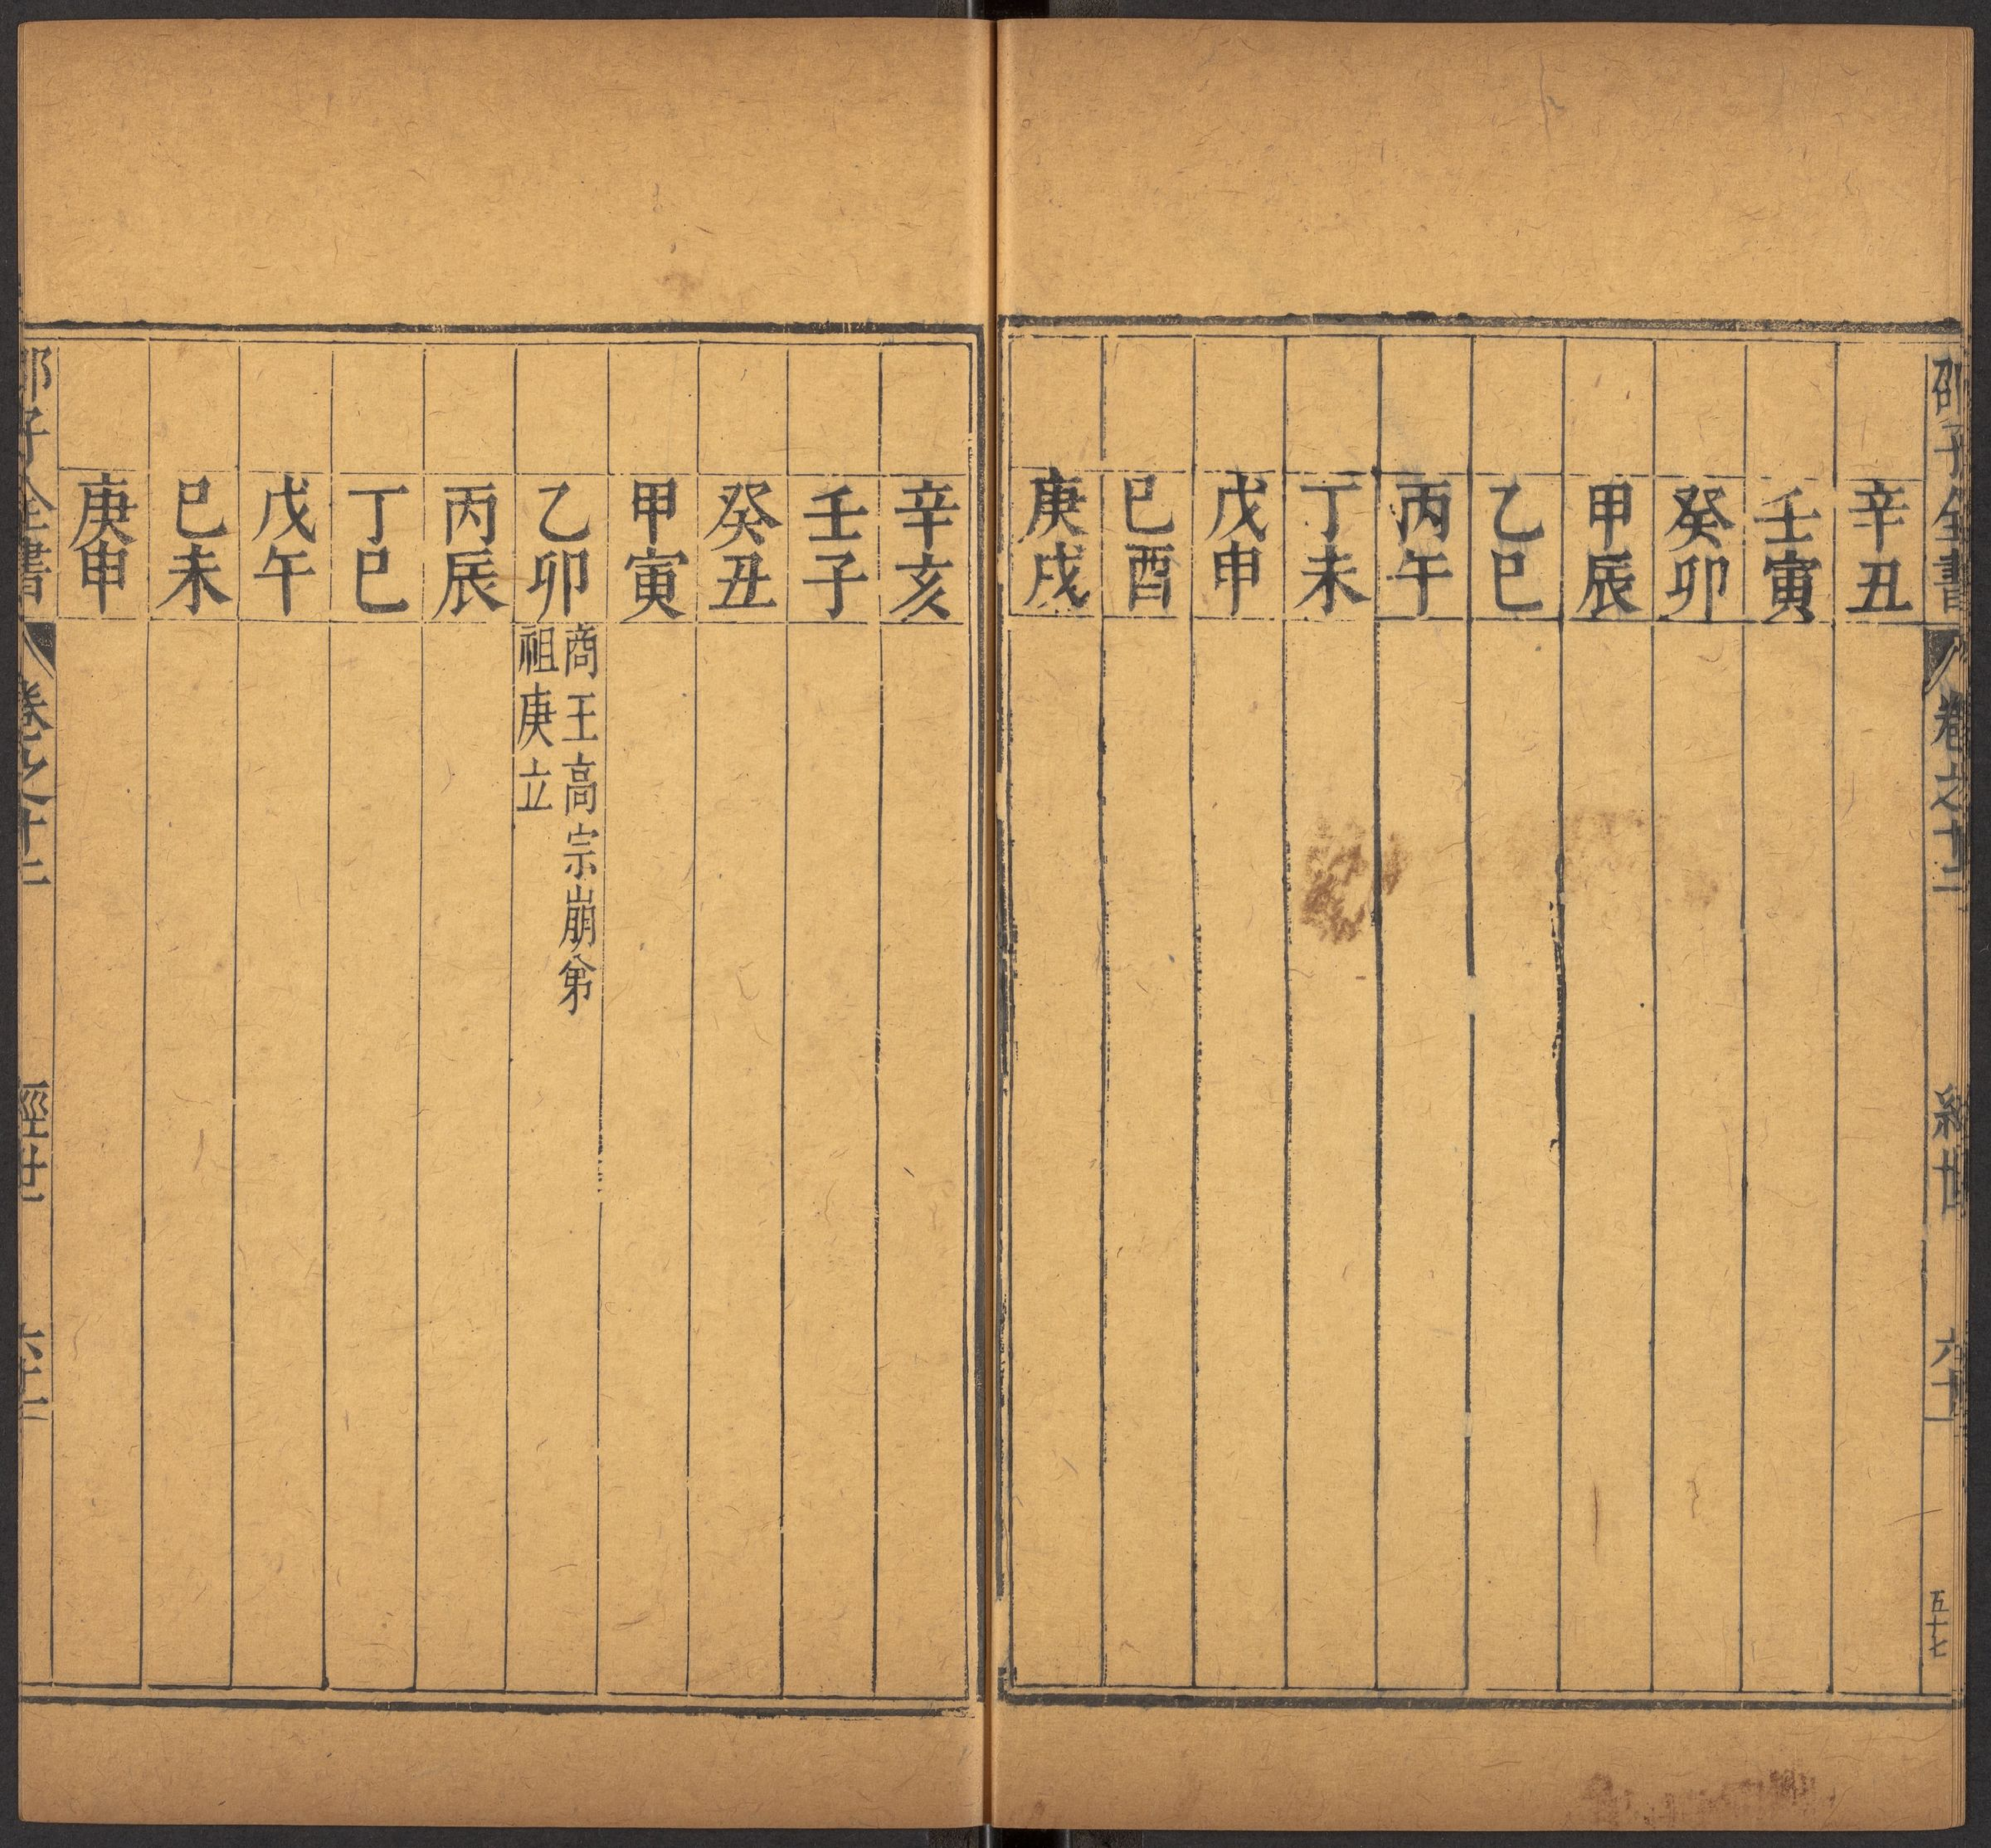 邵子全書 卷之十二 經世 六十一 五十七
辛丑
壬寅
癸卯
甲辰
乙巳
丙午
丁未
戊申
巳酉
庚戌
辛亥
壬子
癸丑
甲寅
乙卯
商王高宗崩弟
祖庚立
丙辰
丁巳
戊午
巳未
庚申
邵子全書 卷之十二 經世